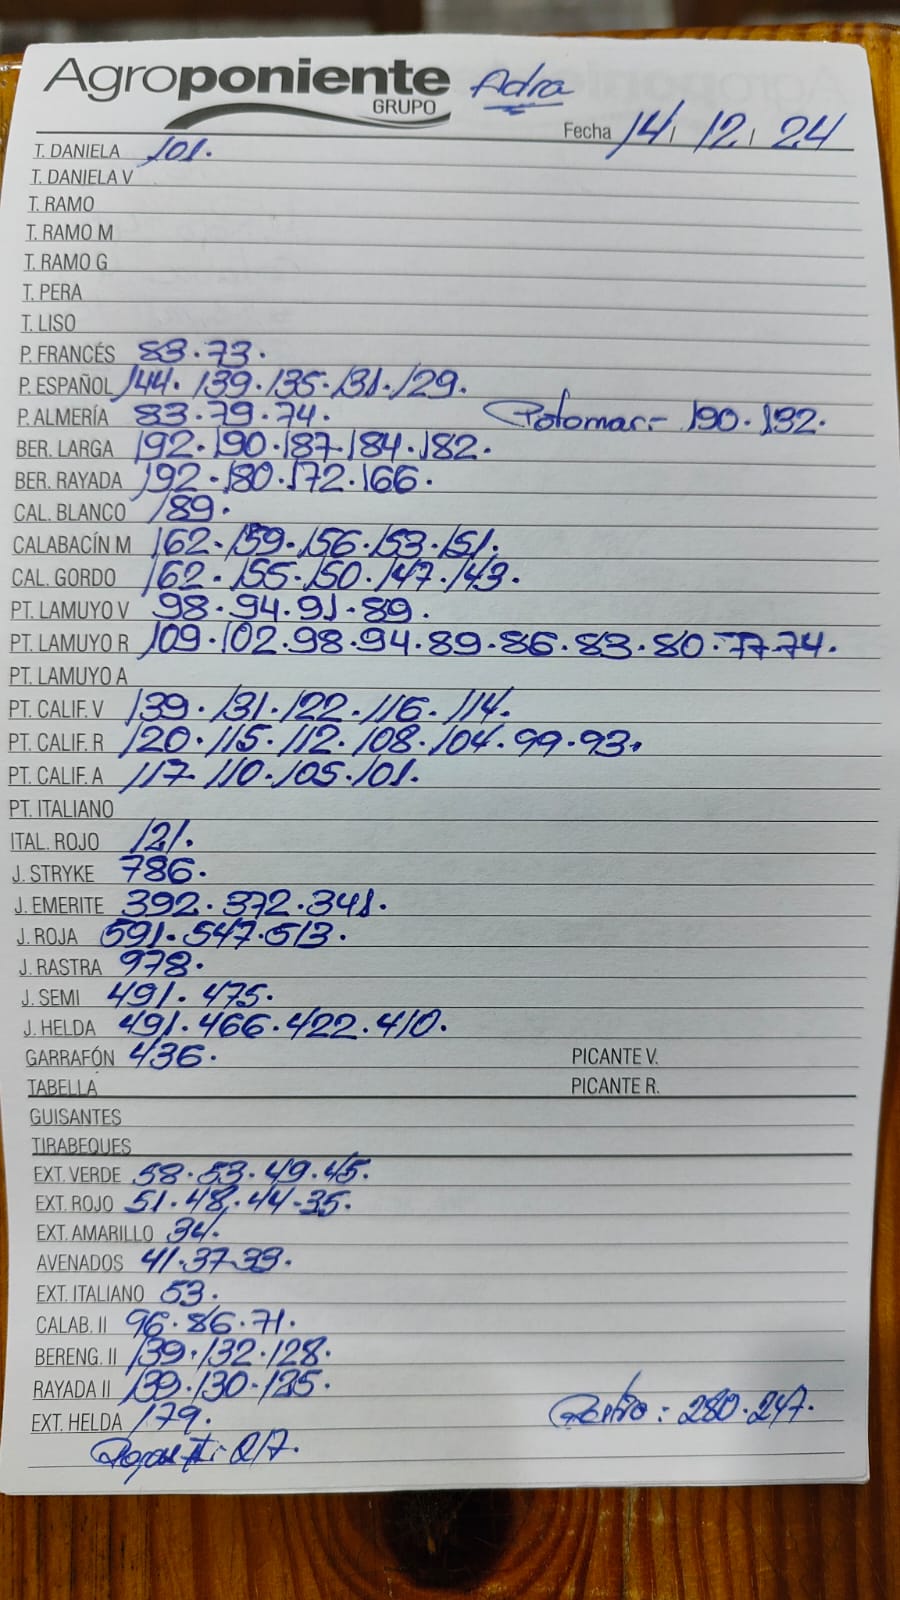 Agroponiente Adra
GRUPO
Fecha 14 / 12 / 24
T. DANIELA 101.
T. DANIELA V
T. RAMO
T. RAMO M
T. RAMO G
T. PERA
T. LISO
P. FRANCÉS 83.73.
P. ESPAÑOL 144. 139.135.131.129.
P. ALMERÍA 83.79.74. Potomac- 190.132.
BER. LARGA 192.190.187.184.182.
BER. RAYADA 192.180.172.166.
CAL. BLANCO 189.
CALABACÍN M 162.159.156.153.151.
CAL. GORDO 162.155.150.147.143.
PT. LAMUYO V 98.94.91.89.
PT. LAMUYO R 109.102.98.94.89.86.83.80.77.74.
PT. LAMUYO A
PT. CALIF. V 139.131.122.116.114.
PT. CALIF. R 120.115.112.108.104.99.93.
PT. CALIF. A 117.110.105.101.
PT. ITALIANO
ITAL. ROJO 121.
J. STRYKE 786.
J. EMERITE 392.372.341.
J. ROJA 591.547.513.
J. RASTRA 978.
J. SEMI 491.475.
J. HELDA 491.466.422.410.
GARRAFÓN 436. PICANTE V.
TABELLA PICANTE R.
GUISANTES
TIRABEQUES
EXT. VERDE 58.53.49.45.
EXT. ROJO 51.48.44-35.
EXT. AMARILLO 34.
AVENADOS 41.37.33.
EXT. ITALIANO 53.
CALAB. II 96.86.71.
BERENG. II 139.132.128.
RAYADA II 139.130.125.
EXT. HELDA 179. : 280.247.
II: 217.